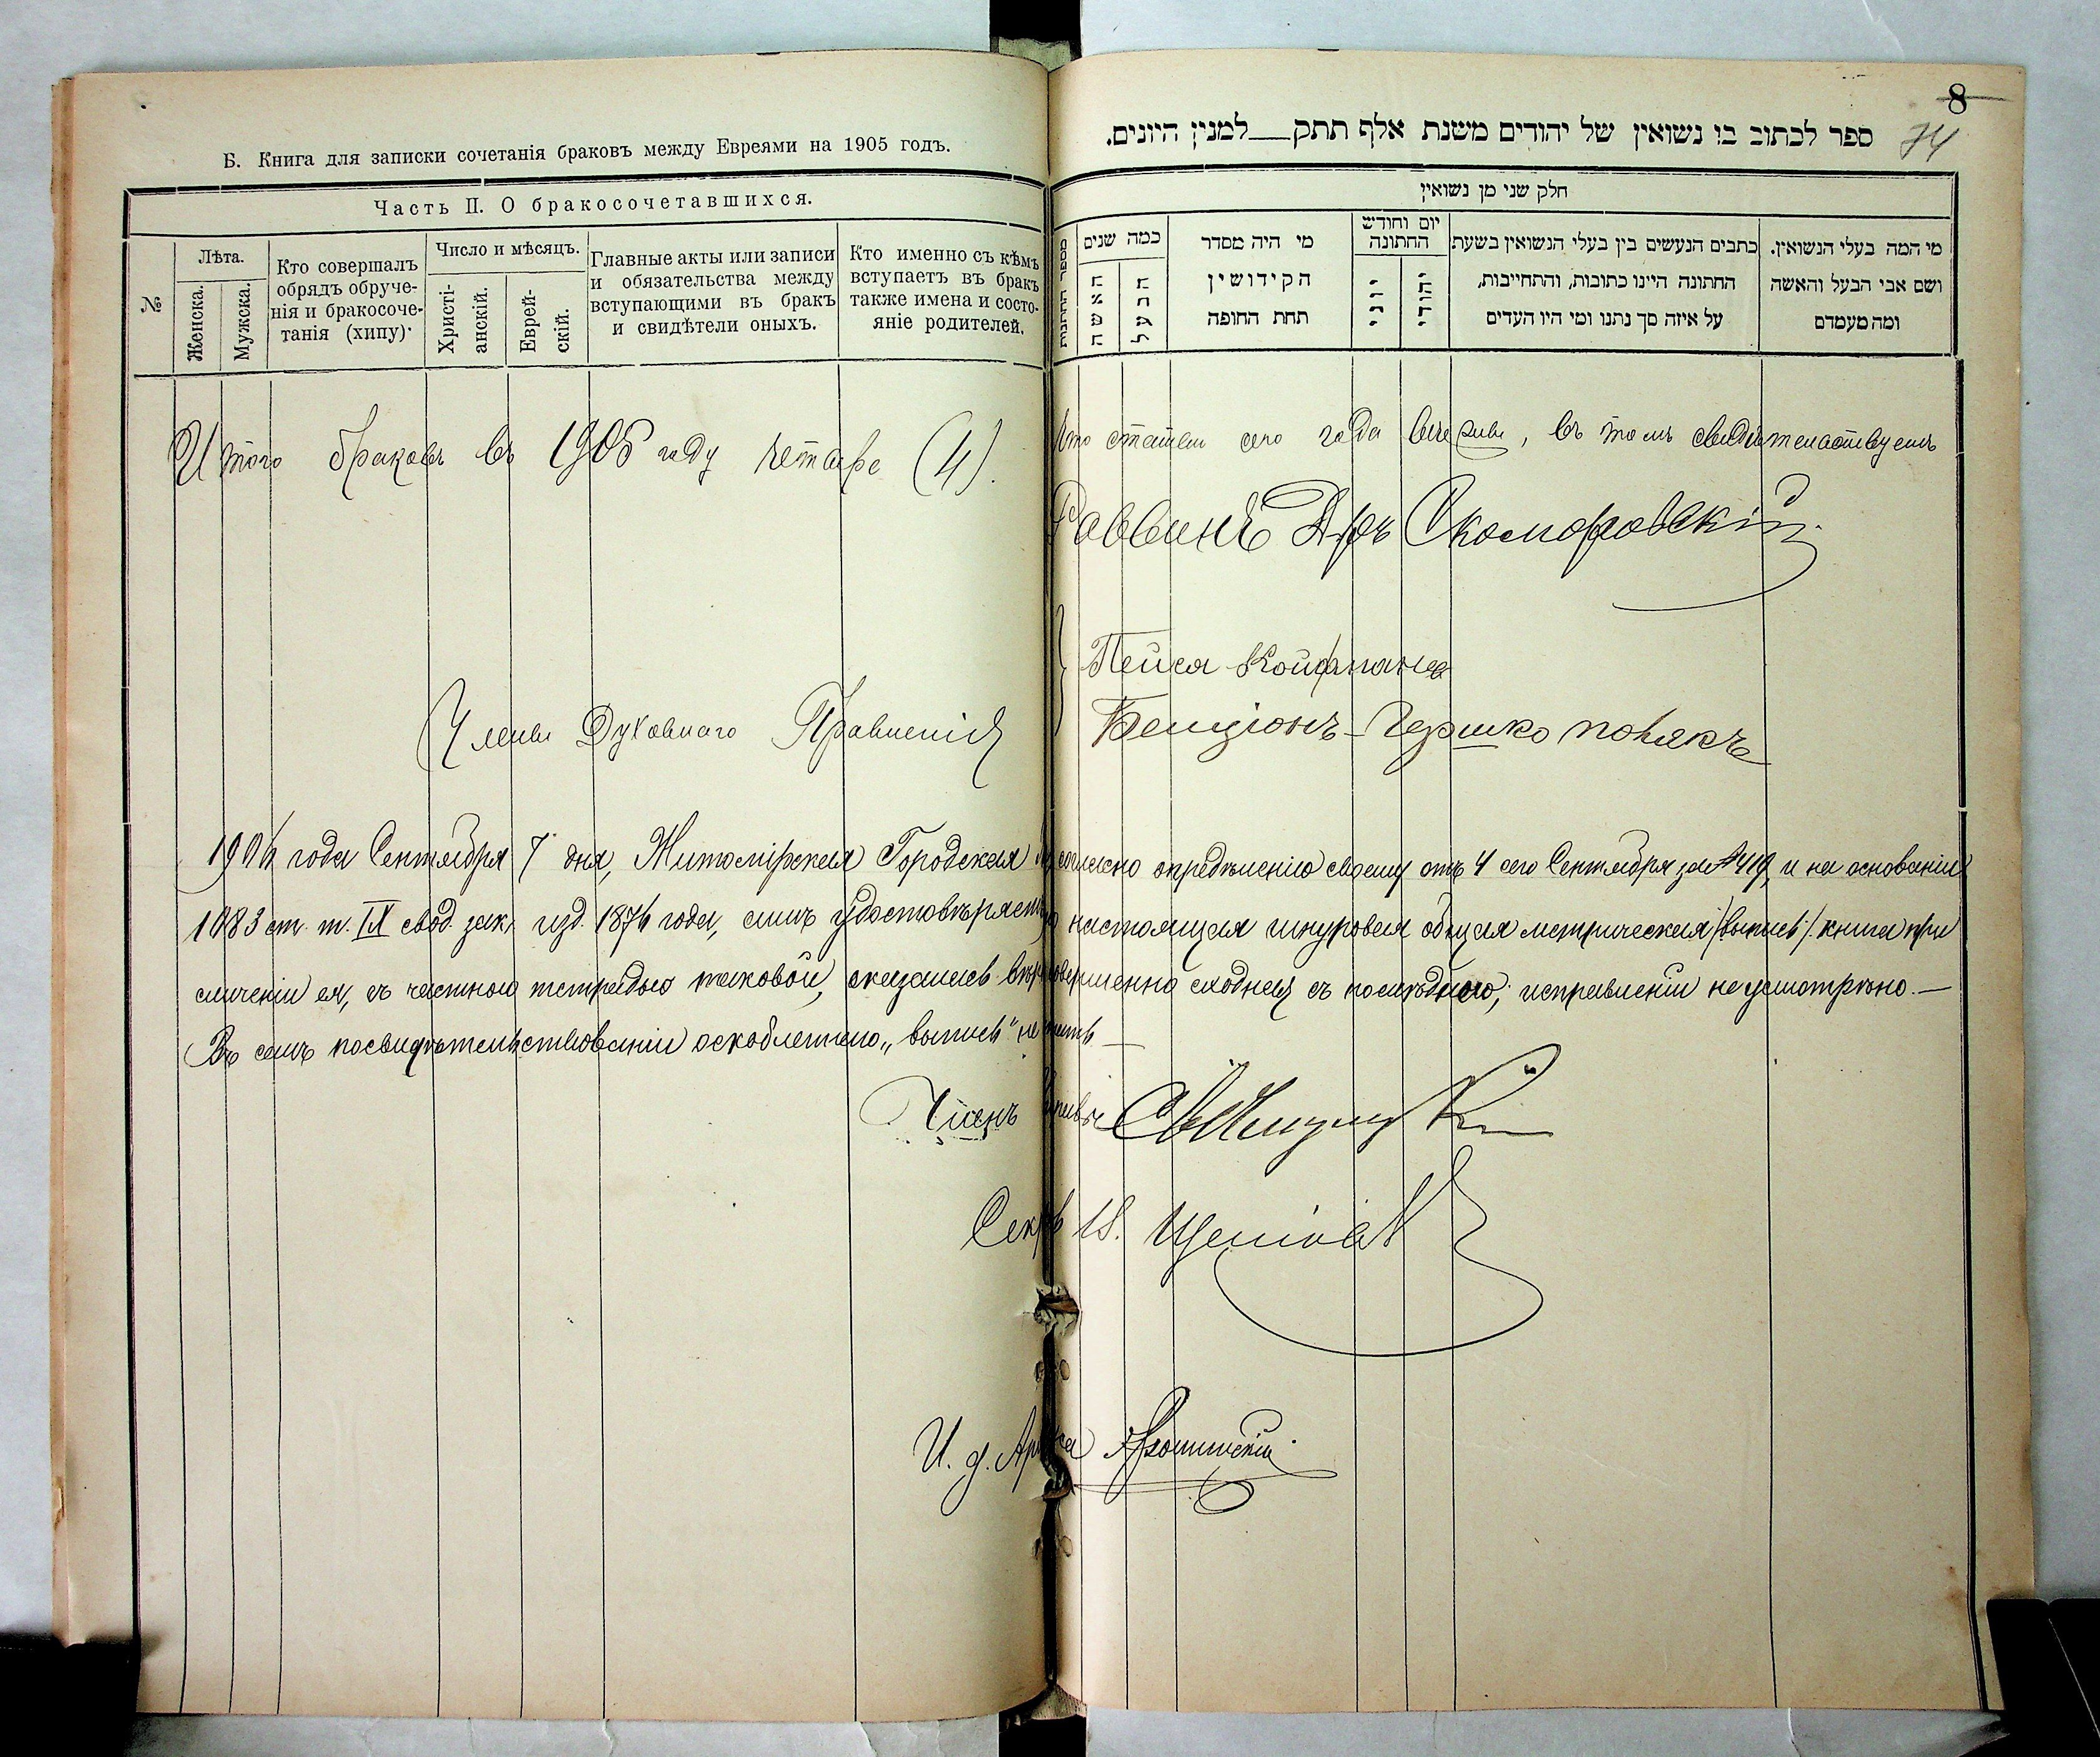 Б. Книга для записки сочетанія браковъ между Евреями на 1905 годъ.
Часть II. О бракосочетавшихся.
№
Лѣта.
Женска.
Мужска.
Кто совершалъ
обрядъ обруче-
нія и бракосоче-
танія (хипу)·
Число и мѣсяцъ.
Христі-
анскій.
Еврей-
скій.
Главные акты или записи
и обязательства между
вступающими въ бракъ
и свидѣтели оныхъ.
Кто именно съ кѣмъ
вступаетъ въ бракъ
также имена и состо-
яніе родителей.
8
74
ספר לכתוב בו נשואין של יהודים משנת אלף תתק___למנין היונים.
חלק שני מן נשואין
מספר החתנות
כמה שנים
האשה
הבעל
מי היה מסדר
הקידושין
תחת החופה
יום וחודש
החתונה
יוני
יהודי
כתבים הנעשים בין בעלי הנשואין בשעת
החתונה היינו כתובות, והתחייבות,
על איזה סך נתנו ומי היו העדים
מי המה בעלי הנשואין.
ושם אבי הבעל והאשה
ומה מעמדם
Итого браковъ въ 1905 году четыре (4). Что статьи сего года вѣрны, въ томъ свидѣтельствуемъ
Раввинъ Д-ръ Скоморовскій
Члены Духовнаго Правленія
Пейса Койфманъ
Бенціонъ-Гершко Полякъ
1906 года Сентября 7 дня, Житомірская Городская согласно опредѣленію своему отъ 4 сего Сентября за № 419, и на основаніи
1083 ст. т. IX свод. зак. изд. 1876 года, симъ удостовѣряетъ настоящая шнуровая общая метрическая /выпись/ книга при
сличеніи ея, съ частною тетрадью таковой, оказалась совершенно сходная съ послѣднею, исправленій не усмотрѣно.—
Въ семъ посвидѣтельствованіи „выпись" —
Членъ Управы
Секрь
И. д.